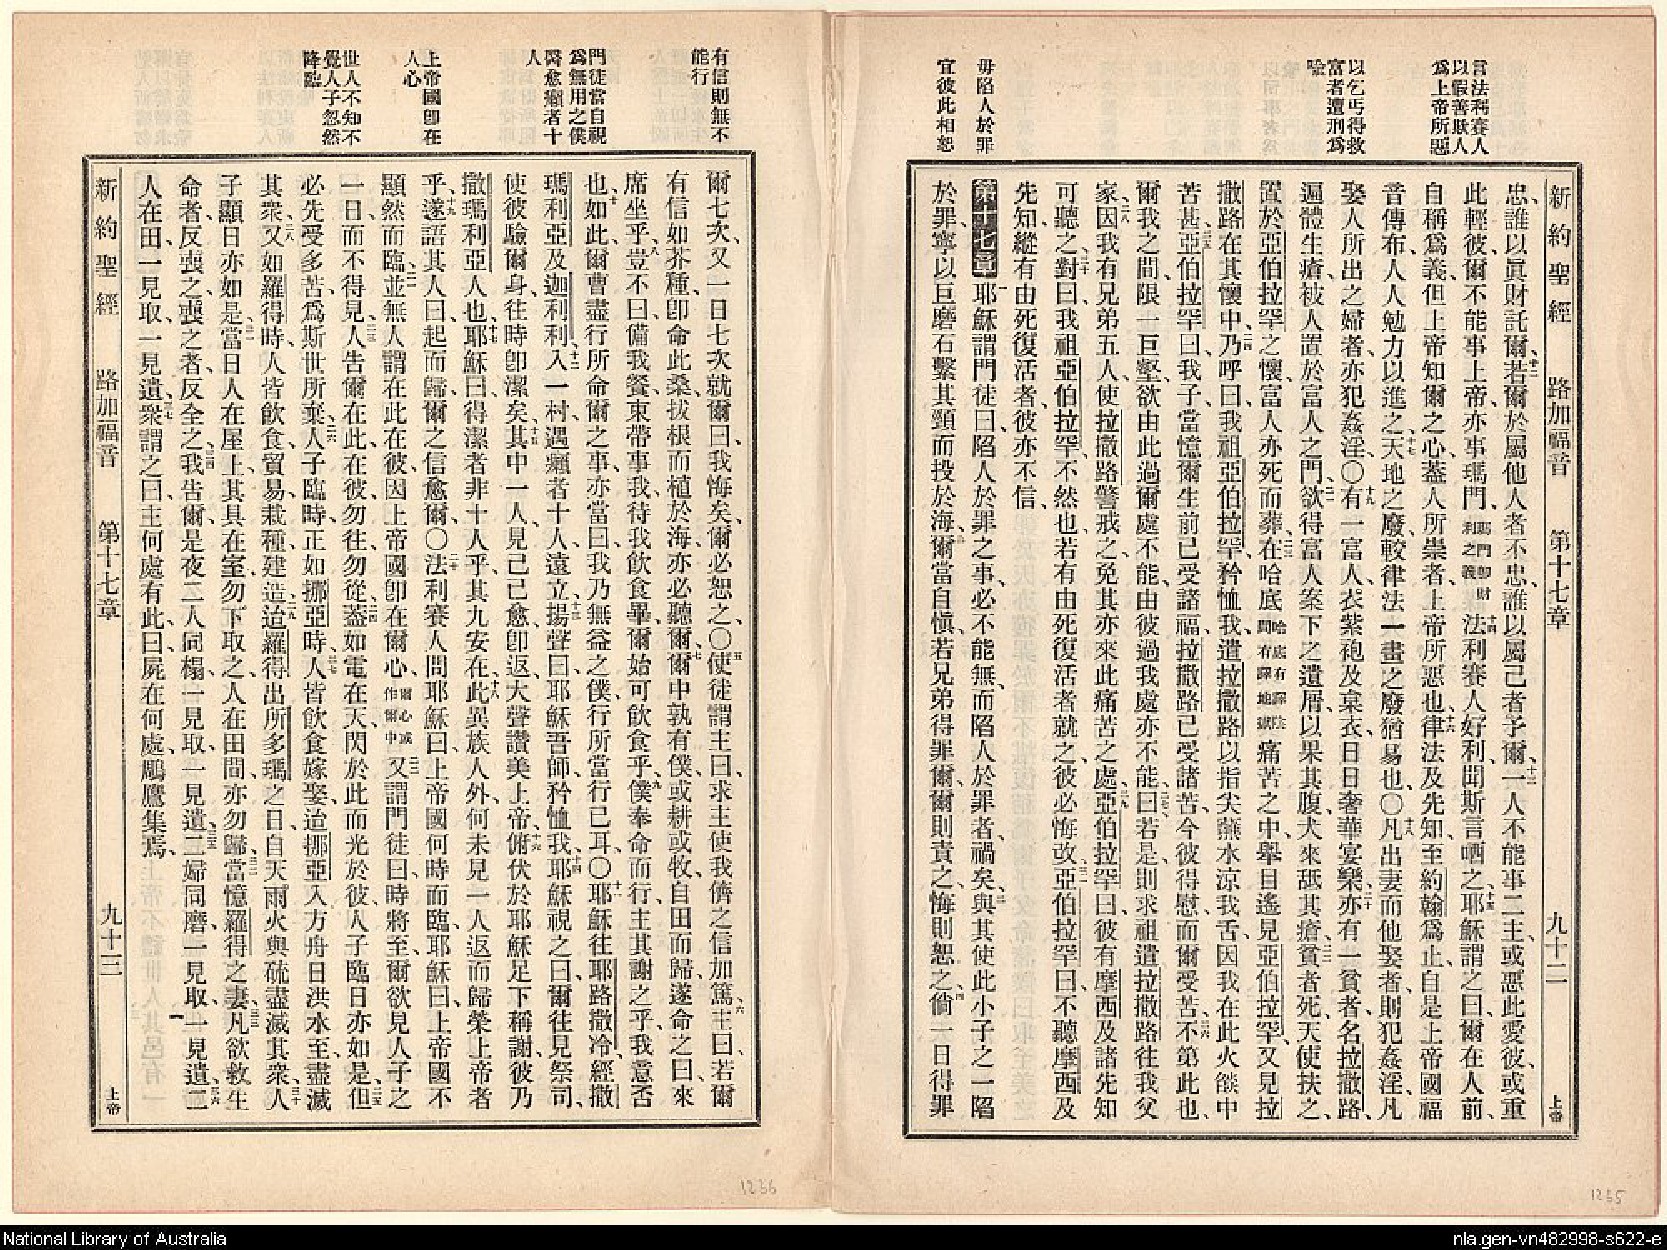 言法利賽人
以假善欺人
爲上帝所惡
以乞丐得救
富者遭刑爲
喻
毋陷人於罪
宜彼此相恕
新約聖經 路加福音 第十七章 九十二 上帝
忠、誰以眞財託爾、十二若爾於屬他人者不忠、誰以屬己者予爾、十三一人不能事二主、或惡此愛彼、或重
此輕彼、爾不能事上帝、亦事瑪門、瑪門卽財利之義十四法利賽人好利、聞斯言哂之、十五耶穌謂之曰、爾在人前
自稱爲義、但上帝知爾之心、蓋人所崇者、上帝所惡也、十六律法及先知、至約翰爲止、自是上帝國福
音傳布、人人勉力以進之、十七天地之廢、較律法一畫之廢猶易也、〇十八凡出妻而他娶者、則犯姦淫、凡
娶人所出之婦者、亦犯姦淫、〇十九有一富人、衣紫袍及枲衣、日日奢華宴樂、二十亦有一貧者、名拉撒路、
遍體生瘡、被人置於富人之門、二一欲得富人案下之遺屑、以果其腹、犬來舐其瘡、二二貧者死、天使扶之
置於亞伯拉罕之懷、富人亦死而葬、二三在哈底哈底有譯陰間有譯地獄痛苦之中、舉目遙見亞伯拉罕、又見拉
撒路在其懷中、二四乃呼曰、我祖亞伯拉罕、矜恤我、遣拉撒路以指尖蘸水涼我舌、因我在此火燄中
苦甚、二五亞伯拉罕曰、我子、當憶爾生前已受諸福、拉撒路已受諸苦、今彼得慰而爾受苦、二六不第此也、
爾我之間、限一巨壑、欲由此過爾處不能、由彼過我處亦不能、二七曰、若是、則求祖遣拉撒路往我父
家、二八因我有兄弟五人、使拉撒路警戒之、免其亦來此痛苦之處、二九亞伯拉罕曰、彼有摩西及諸先知
可聽之、三十對曰、我祖亞伯拉罕、不然也、若有由死復活者就之、彼必悔改、三一亞伯拉罕曰、不聽摩西及
先知、縱有由死復活者、彼亦不信、
第十七章 一耶穌謂門徒曰、陷人於罪之事、必不能無、而陷人於罪者、禍矣、二與其使此小子之一陷
於罪、寧以巨磨石繫其頸而投於海、三爾當自愼、若兄弟得罪爾、爾則責之、悔則恕之、四倘一日得罪
有信則無不
能行
門徒當自視
爲無用之僕
醫愈癩者十
人
上帝國卽在
人心
世人不知不
覺人子忽然
降臨
爾七次、又一日七次就爾曰、我悔矣、爾必恕之、〇五使徒謂主曰、求主使我儕之信加篤、六主曰、若爾
有信如芥種、卽命此桑、拔根而植於海、亦必聽爾、七爾中孰有僕或耕或牧、自田而歸、遂命之曰、來
席坐乎、八豈不曰、備我餐、束帶事我、待我飲食畢、爾始可飲食乎、九僕奉命而行、主其謝之乎、我意否
也、十如此、爾曹盡行所命爾之事、亦當曰、我乃無益之僕、行所當行已耳、〇十一耶穌往耶路撒冷、經撒
瑪利亞及迦利利、十二入一村、遇癩者十人、遠立、十三揚聲曰、耶穌吾師、矜恤我、十四耶穌視之曰、爾往見祭司、
使彼驗爾身、往時卽潔矣、十五其中一人、見己已愈、卽返、大聲讚美上帝、十六俯伏於耶穌足下稱謝、彼乃
撒瑪利亞人也、十七耶穌曰、得潔者非十人乎、其九安在、十八此異族人外、何未見一人返而歸榮上帝者
乎、十九遂語其人曰、起而歸、爾之信愈爾、〇二十法利賽人問耶穌曰、上帝國何時而臨、耶穌曰、上帝國不
顯然而臨、二一並無人謂在此在彼、因上帝國卽在爾心、爾心或作爾中二二又謂門徒曰、時將至、爾欲見人子之
一日而不得見、二三人告爾在此、在彼、勿往、勿從、二四蓋如電在天、閃於此而光於彼、人子臨日亦如是、二五但
必先受多苦、爲斯世所棄、二六人子臨時、正如挪亞時、二七人皆飲食嫁娶、迨挪亞入方舟日、洪水至、盡滅
其衆、二八又如羅得時、人皆飲食、貿易、栽種、建造、二九迨羅得出所多瑪之日、自天雨火與硫、盡滅其衆、三十人
子顯日亦如是、三一當日人在屋上、其具在室、勿下取之、人在田間、亦勿歸、三二當憶羅得之妻、三三凡欲救生
命者、反喪之、喪之者、反全之、三四我告爾、是夜二人同榻、一見取、一見遺、三五二婦同磨、一見取、一見遺、三六二
人在田、一見取、一見遺、三七衆謂之曰、主、何處有此、曰、屍在何處、鵰鷹集焉、
新約聖經 路加福音 第十七章 九十三 上帝
1236
1235
National Library of Australia
nla.gen-vn482998-s622-e